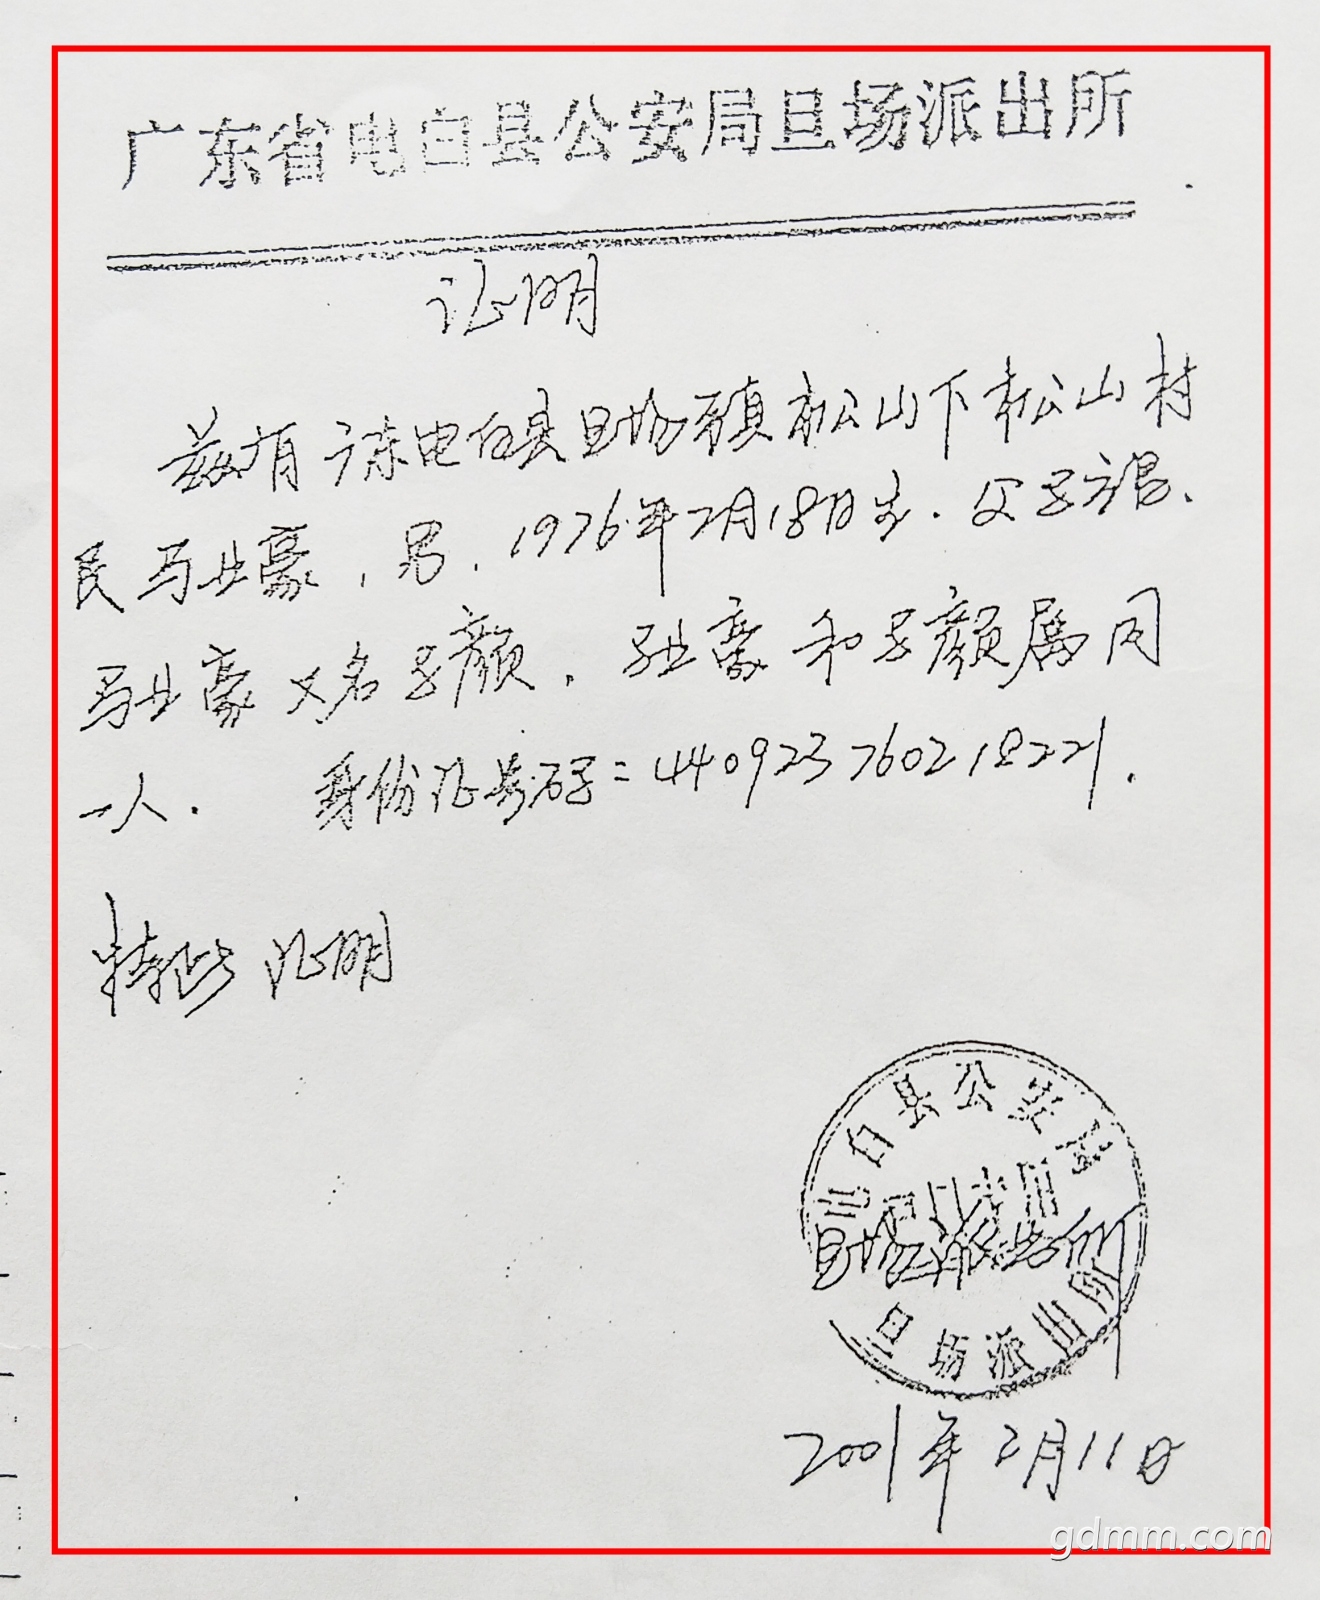 广东省电白县公安局旦场派出所
证明
兹有广东电白县旦场镇松山下松山村
民马业豪,男,1976年2月18日生.父马方
马业豪又名马颜,马业豪和马颜属同
一人. 身份证号码:440923760218221.
特此证明
电白县公安局
户口专用
旦场派出所
旦场派出所
2001年2月11日
gdmm.com